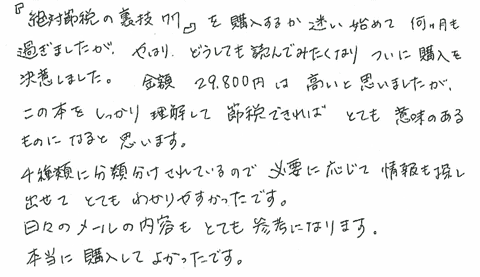 『絶対節税の裏技77』を購入するか迷い始めて何ヶ月も
過ぎましたが、やはり、どうしても読んでみたくなりついに購入を
決意しました。 金額 29.800円は高いと思いましたが、
この本をしっかり理解して節税できればとても意味のある
ものになると思います。
4種類に分類分けされているので必要に応じて情報も探し
出せてとてもわかりやすかったです。
日々のメールの内容もとても参考になります。
本当に購入してよかったです。